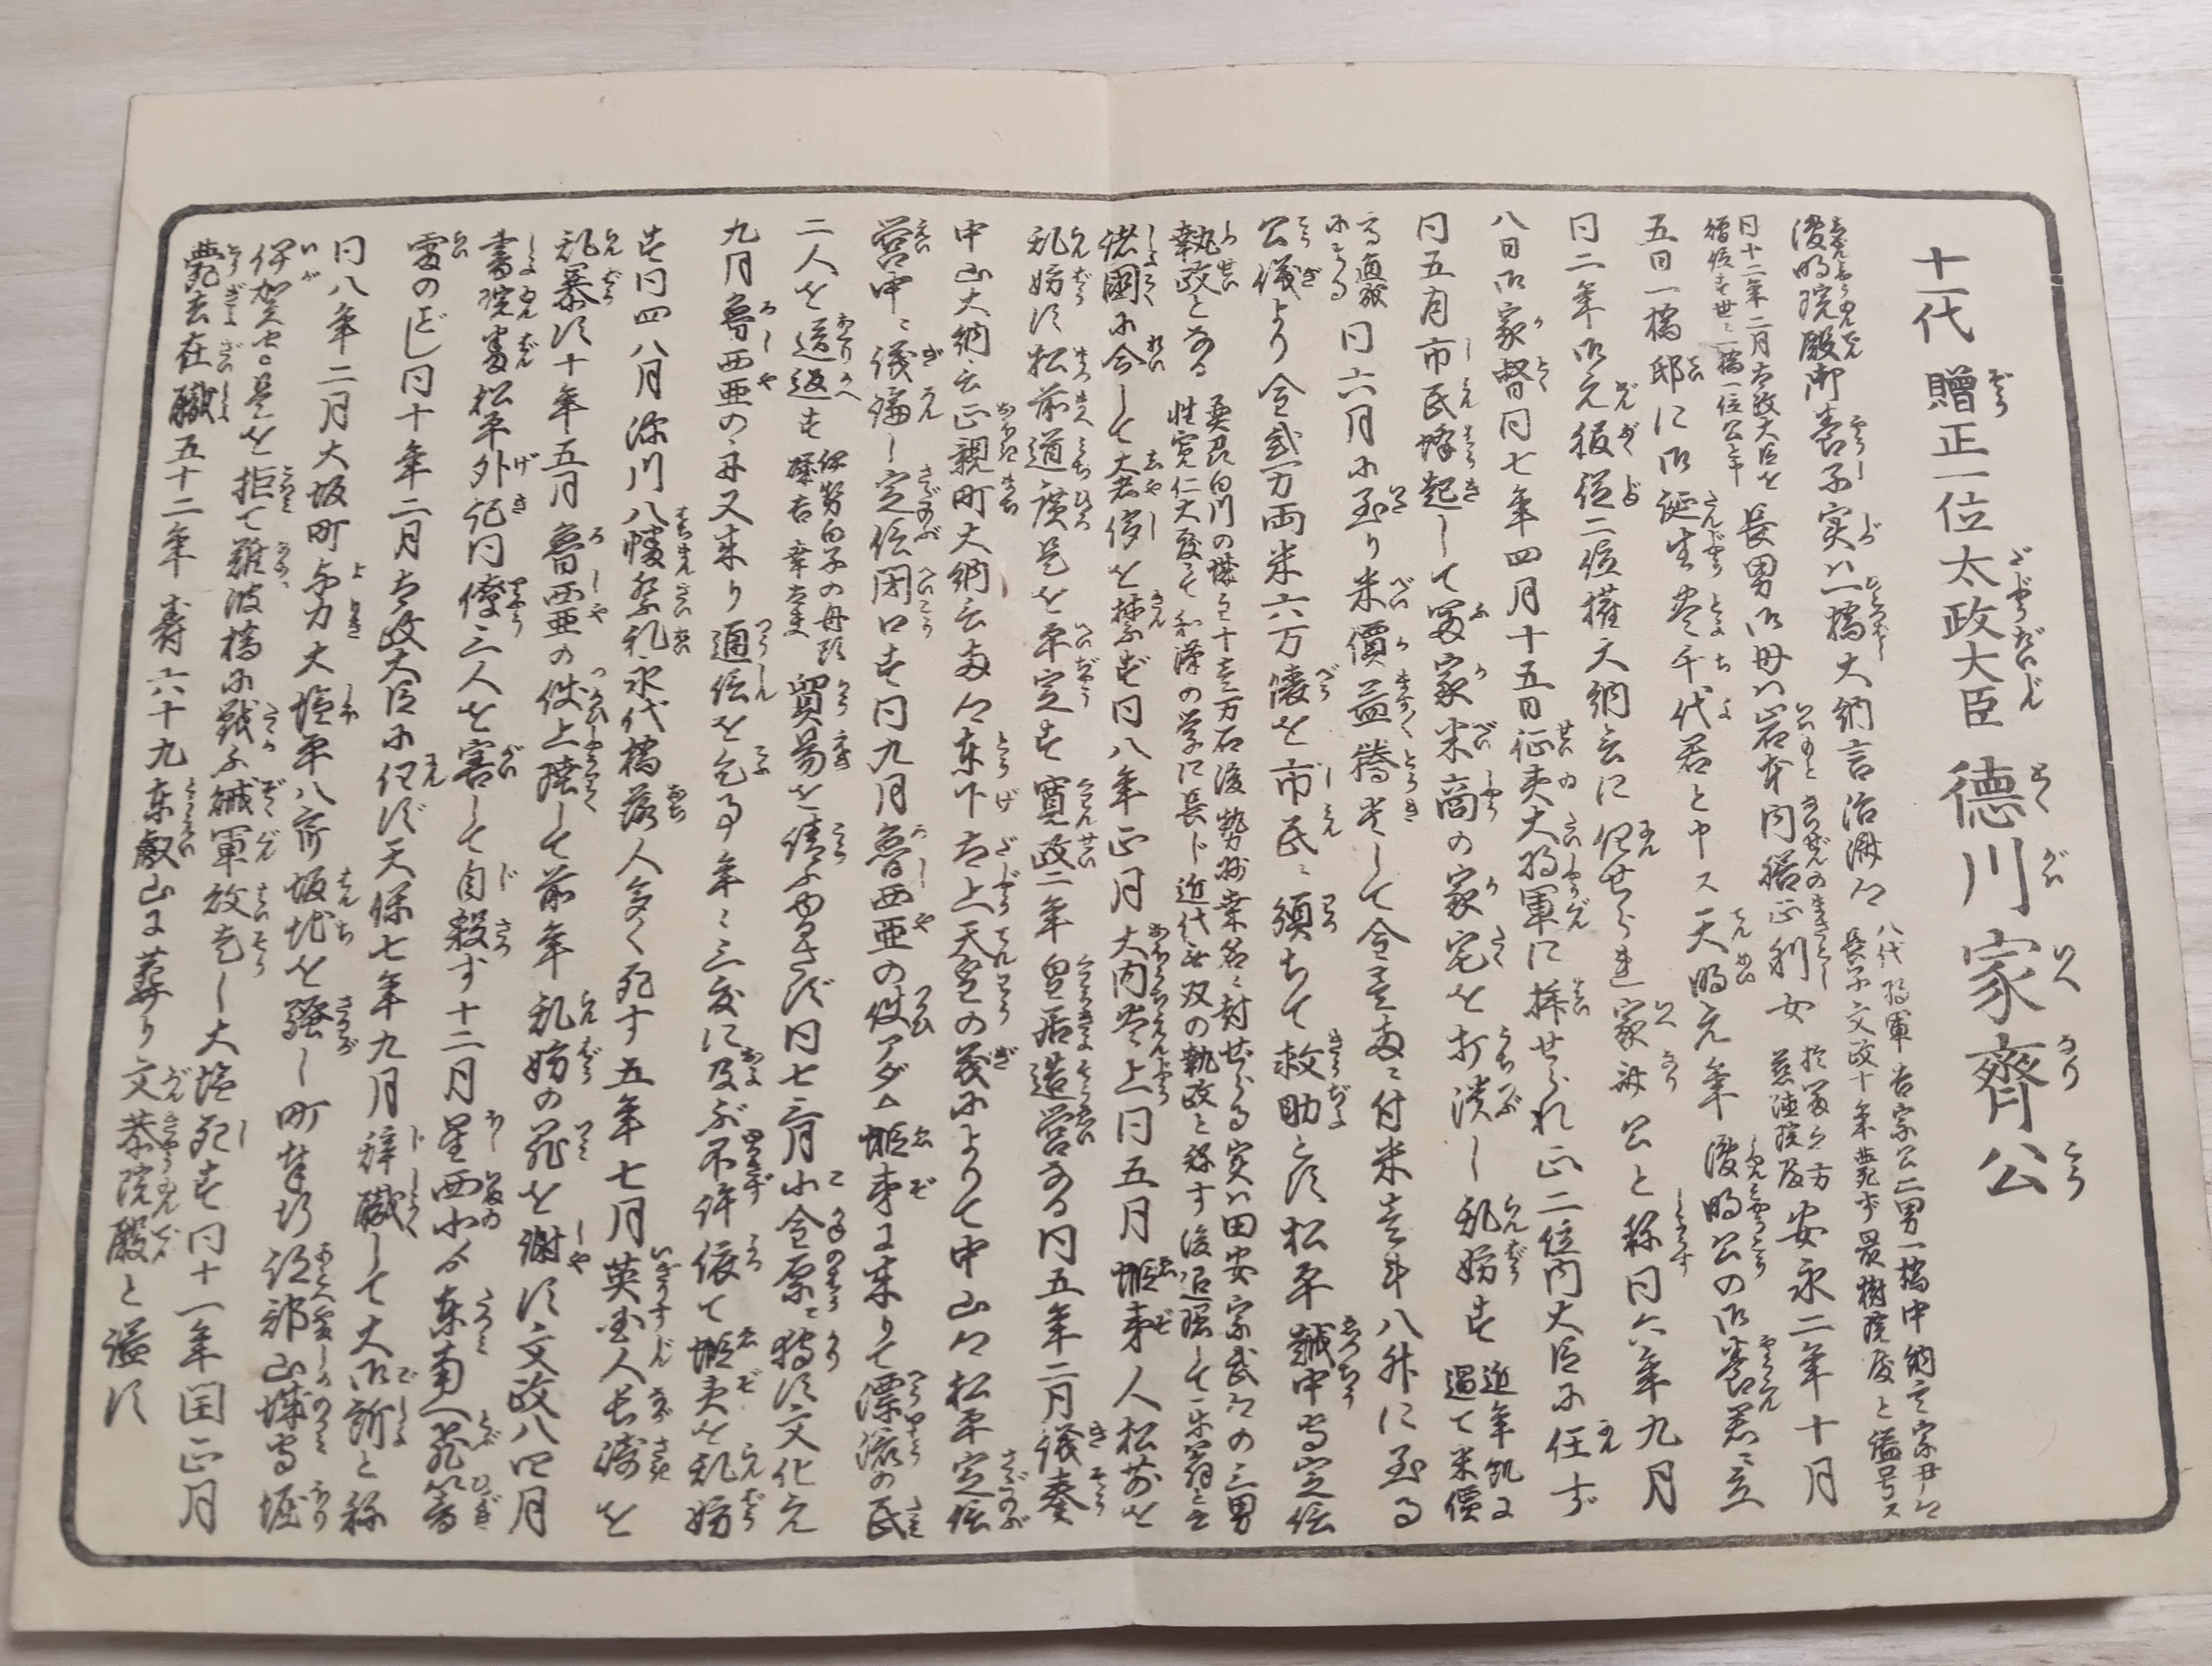 十一代 贈正一位太政大臣 德川家齊公
浚明院殿御養子実ハ一橋大納言治濟卿 八代将軍吉宗公二男一橋中納言宗尹卿 長子文政十年薨ず最樹院殿と謚号ス
同十二年二月太政大臣を贈位す世ニ一橋一位公と申 長男御母ハ岩本内膳正利女 於富之方 慈徳院殿 安永二年十月
五日一橋邸に御誕生豊千代君と申ス天明元年浚明公の御養君ニ立
同二年御元服従二位権大納言に任せられ家斉公と称同六年九月
八日御家督同七年四月十五日征夷大将軍に拝せられ正二位内大臣に任ず
同五月市民蜂起して冨家米商の家宅を打潰し乱妨す 近年飢に逼て米價
高直故にする 同六月に至り米價益騰貴して金壱両ニ付米壱斗八升に至る
公儀より金弐万両米六万俵を市民ニ頒ちて救助とす松平越中守定信
執政となる 奥刕白川の城主十壱万石後勢州桒名ニ封せらる実ハ田安宗武卿の三男 性寛仁大度にて和漢の学に長ド近代無双の執政と称す後退隠して楽翁と云
諸國に令して大奢侈を禁ず同八年正月大内炎上同五月蝦夷人松前を
乱妨す松前道廣是を平定す寛政二年皇居造営なる同五年二月議奏
中山大納言正親町大納言両卿東下太上天皇の義によりて中山卿松平定信
営中ニ議論し定信閉口す同九月魯西亜の使アダム蝦夷に来りて漂流の民
二人を送返す 伊勢白子の舟頭 磯吉 幸太夫 貿易を請ふゆるさず同七三月小金原ニ狩す文化元
九月魯西亜の舟又来り通信を乞事年ニ三度に及ぶ不許依て蝦夷を乱妨
す同四八月深川八幡祭礼永代橋落人多く死す五年七月英吉人長崎を
乱暴す十年五月魯西亜の使上陸して前年乱妨の罪を謝す文政八四月
書院番松平外記同僚三人を害して自殺す十二月星西北より東南へ飛響
雷のごとし同十年二月太政大臣に任ず天保七年九月辞職して大御所と称
同八年二月大坂町与力大塩平八郎坂地を騒し町奉行跡部山城守堀
伊賀守是を拒て難波橋に戦ふ賊軍敗走し大塩死す同十一年閏正月
薨去在職五十二年壽六十九東叡山に葬り文恭院殿と謚す